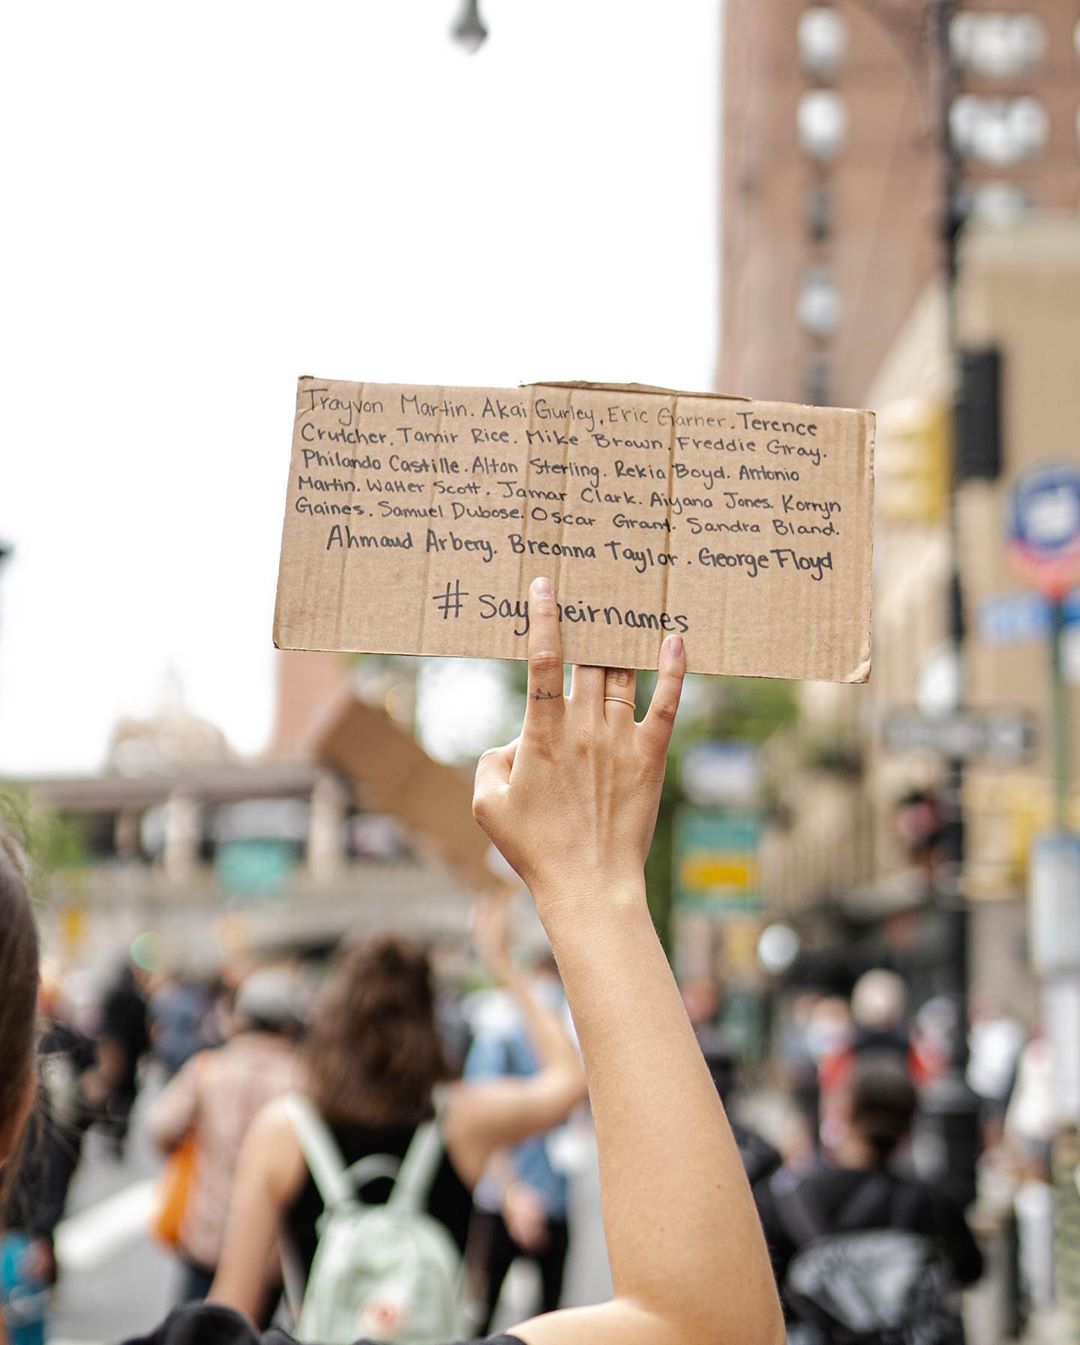 Trayvon Martin. Akai Gurley. Eric Garner. Terence
Crutcher. Tamir Rice. Mike Brown. Freddie Gray.
Philando Castille. Alton Sterling. Rekia Boyd. Antonio
Martin. Walter Scott. Jamar Clark. Aiyana Jones. Korryn
Gaines. Samuel Dubose. Oscar Grant. Sandra Bland.
Ahmaud Arbery. Breonna Taylor. George Floyd
# say heirnames